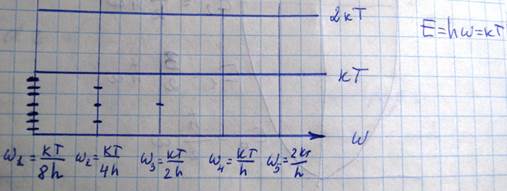 2kT
E=hω=kT
kT
ω
ω₁=kT/8h ω₂=kT/4h ω₃=kT/2h ω₄=kT/h ω₅=2kT/h